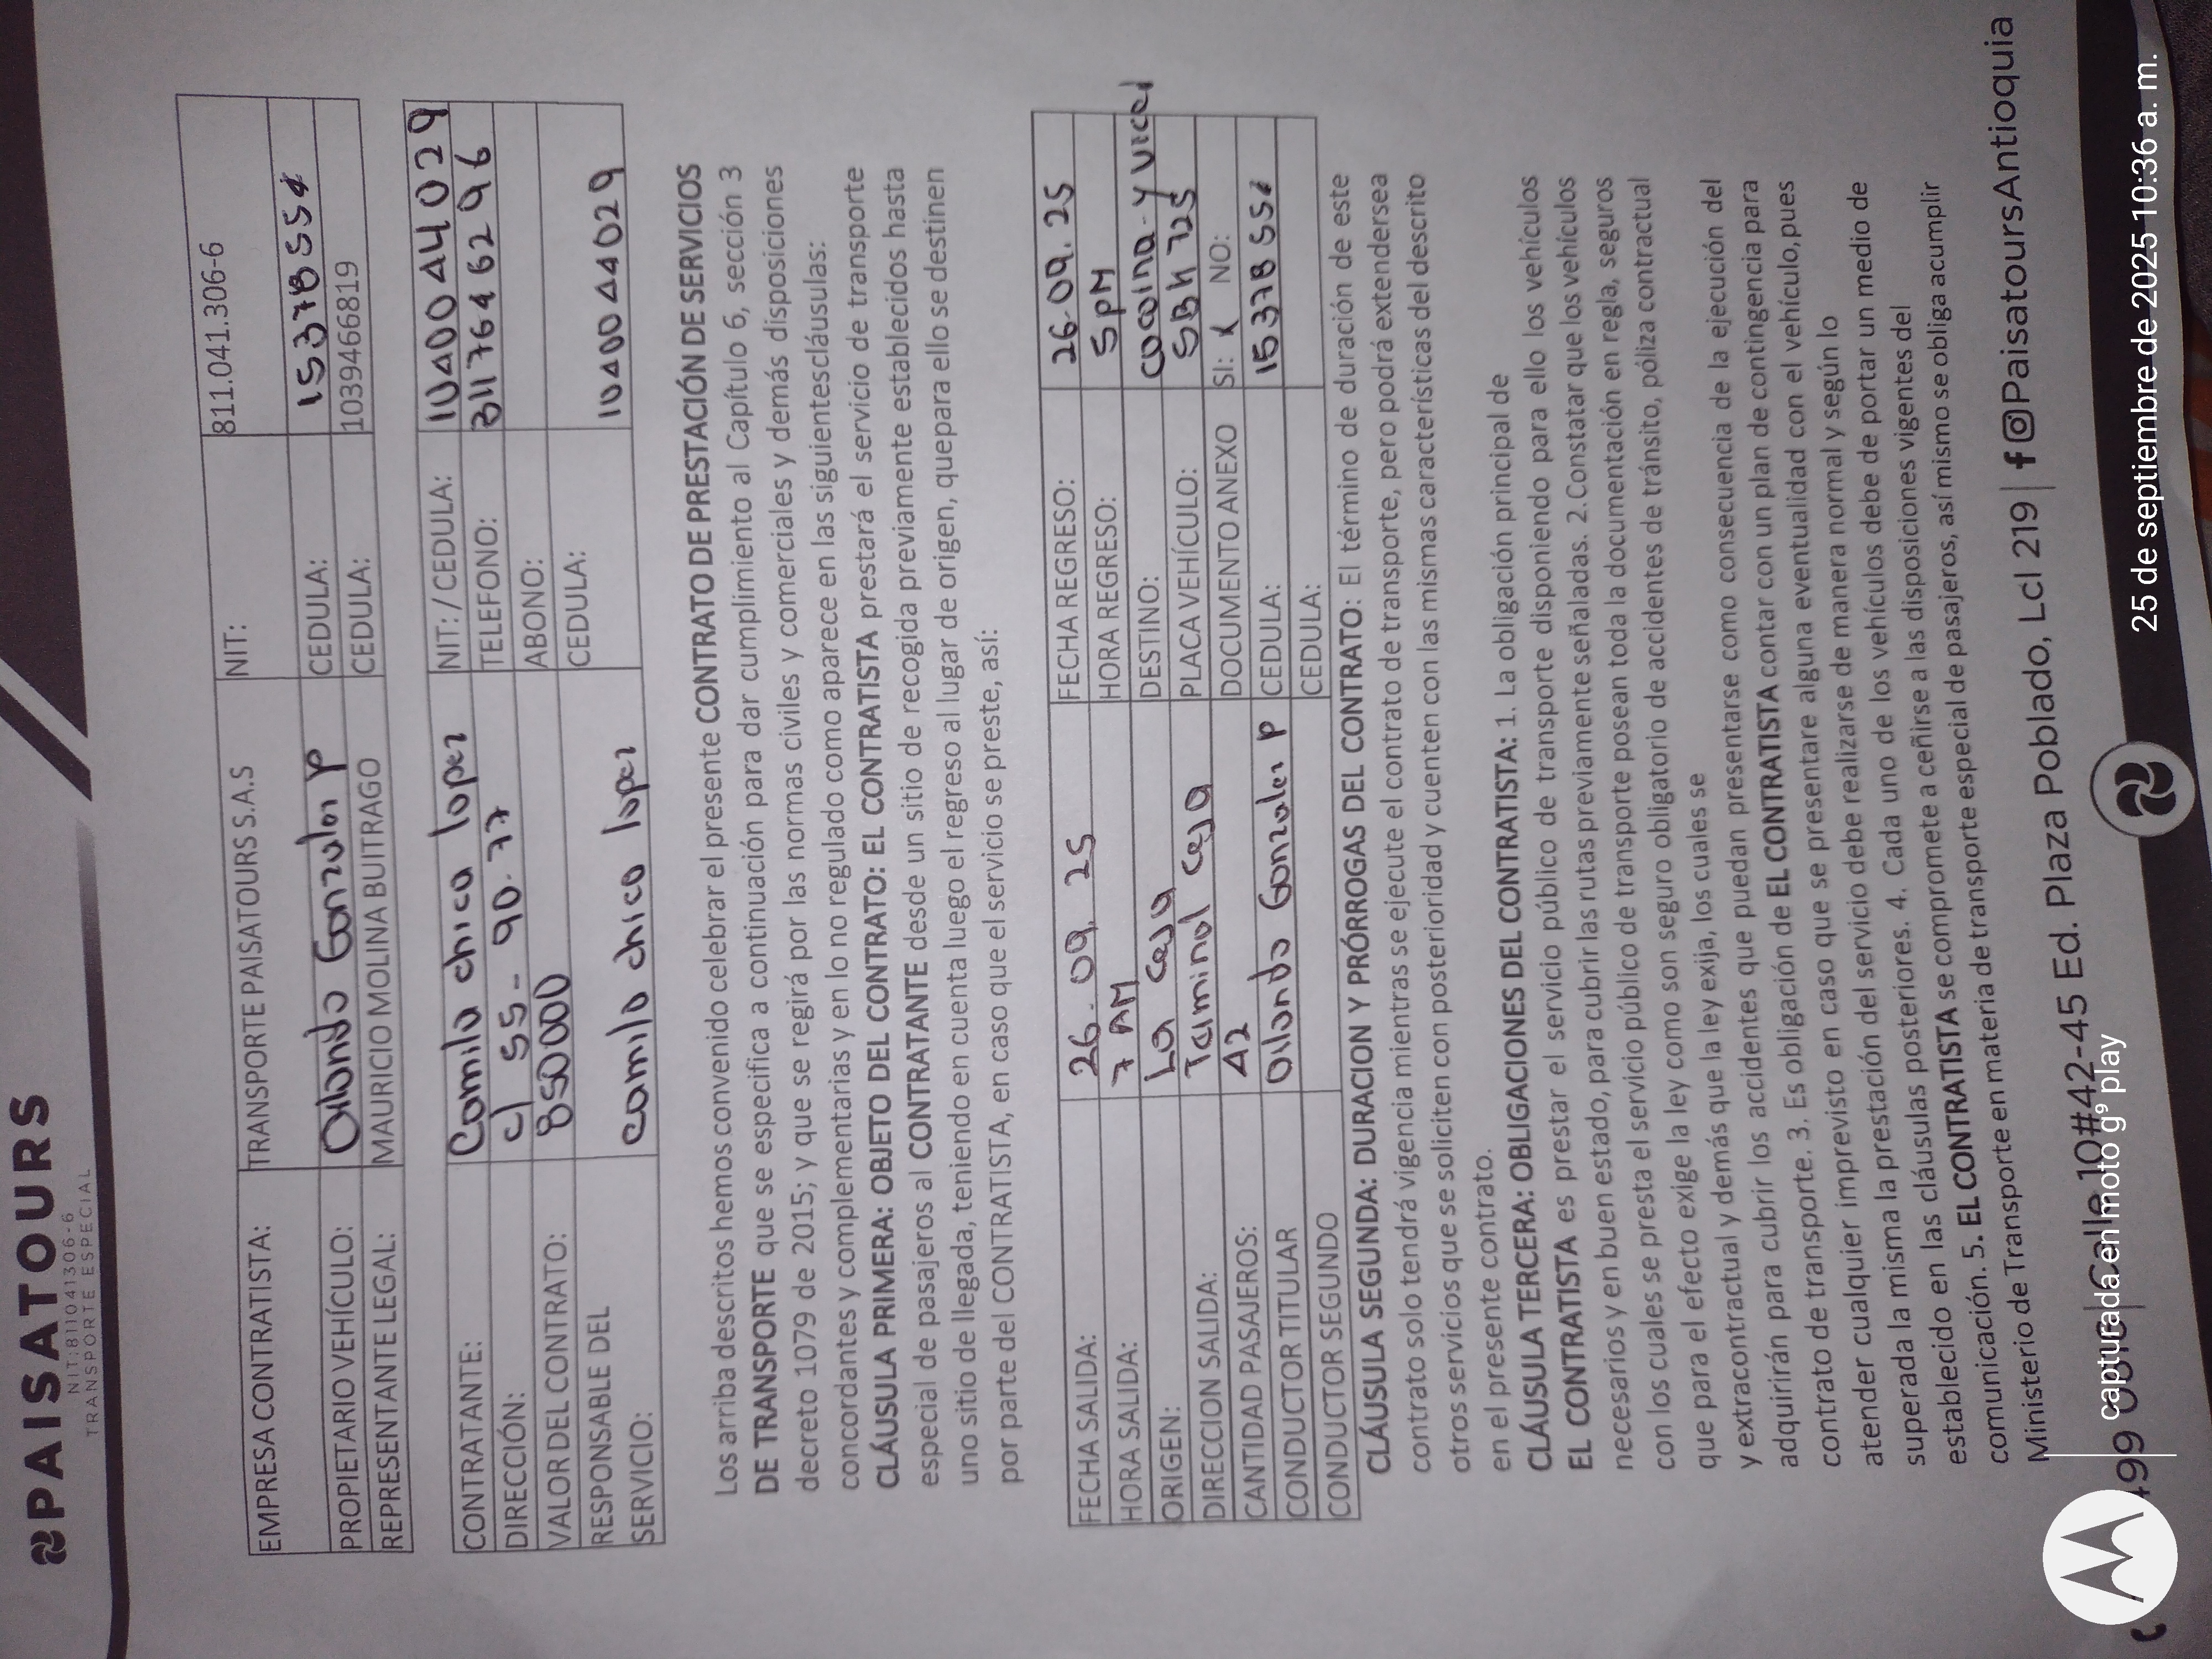 PAISATOURS
NIT:811041306-6
TRANSPORTE ESPECIAL
EMPRESA CONTRATISTA: TRANSPORTE PAISATOURS S.A.S NIT: 811.041.306-6
PROPIETARIO VEHÍCULO: Orlando Gonzalez P CEDULA: 15378554
REPRESENTANTE LEGAL: MAURICIO MOLINA BUITRAGO CEDULA: 1039466819
CONTRATANTE: Camilo chica lopez NIT: / CEDULA: 1040044029
DIRECCIÓN: cl 55 - 90.77 TELEFONO: 3117646296
VALOR DEL CONTRATO: 850000 ABONO:
RESPONSABLE DEL SERVICIO: camilo chica lopez CEDULA: 1040044029
Los arriba descritos hemos convenido celebrar el presente CONTRATO DE PRESTACIÓN DE SERVICIOS
DE TRANSPORTE que se especifica a continuación para dar cumplimiento al Capítulo 6, sección 3
decreto 1079 de 2015; y que se regirá por las normas civiles y comerciales y demás disposiciones
concordantes y complementarias y en lo no regulado como aparece en las siguientescláusulas:
CLÁUSULA PRIMERA: OBJETO DEL CONTRATO: EL CONTRATISTA prestará el servicio de transporte
especial de pasajeros al CONTRATANTE desde un sitio de recogida previamente establecidos hasta
uno sitio de llegada, teniendo en cuenta luego el regreso al lugar de origen, quepara ello se destinen
por parte del CONTRATISTA, en caso que el servicio se preste, así:
FECHA SALIDA: 26-09.25 FECHA REGRESO: 26-09.25
HORA SALIDA: 7 AM HORA REGRESO: 5PM
ORIGEN: La ceja DESTINO:
DIRECCION SALIDA: Terminal ceja PLACA VEHÍCULO: SBH 725
CANTIDAD PASAJEROS: 42 DOCUMENTO ANEXO SI: X NO:
CONDUCTOR TITULAR Orlando Gonzalez P CEDULA: 15378554
CONDUCTOR SEGUNDO CEDULA:
CLÁUSULA SEGUNDA: DURACION Y PRÓRROGAS DEL CONTRATO: El término de duración de este
contrato solo tendrá vigencia mientras se ejecute el contrato de transporte, pero podrá extendersea
otros servicios que se soliciten con posterioridad y cuenten con las mismas características del descrito
en el presente contrato.
CLÁUSULA TERCERA: OBLIGACIONES DEL CONTRATISTA: 1. La obligación principal de
EL CONTRATISTA es prestar el servicio público de transporte disponiendo para ello los vehículos
necesarios y en buen estado, para cubrir las rutas previamente señaladas. 2. Constatar que los vehículos
con los cuales se presta el servicio público de transporte posean toda la documentación en regla, seguros
que para el efecto exige la ley como son seguro obligatorio de accidentes de tránsito, póliza contractual
y extracontractual y demás que la ley exija, los cuales se
adquirirán para cubrir los accidentes que puedan presentarse como consecuencia de la ejecución del
contrato de transporte. 3. Es obligación de EL CONTRATISTA contar con un plan de contingencia para
atender cualquier imprevisto en caso que se presentare alguna eventualidad con el vehículo,pues
superada la misma la prestación del servicio debe realizarse de manera normal y según lo
establecido en las cláusulas posteriores. 4. Cada uno de los vehículos debe de portar un medio de
comunicación. 5. EL CONTRATISTA se compromete a ceñirse a las disposiciones vigentes del
Ministerio de Transporte en materia de transporte especial de pasajeros, así mismo se obliga acumplir
Calle 10#42-45 Ed. Plaza Poblado, Lcl 219 | PaisatoursAntioquia
capturada en moto g⁹ play
25 de septiembre de 2025 10:36 a. m.